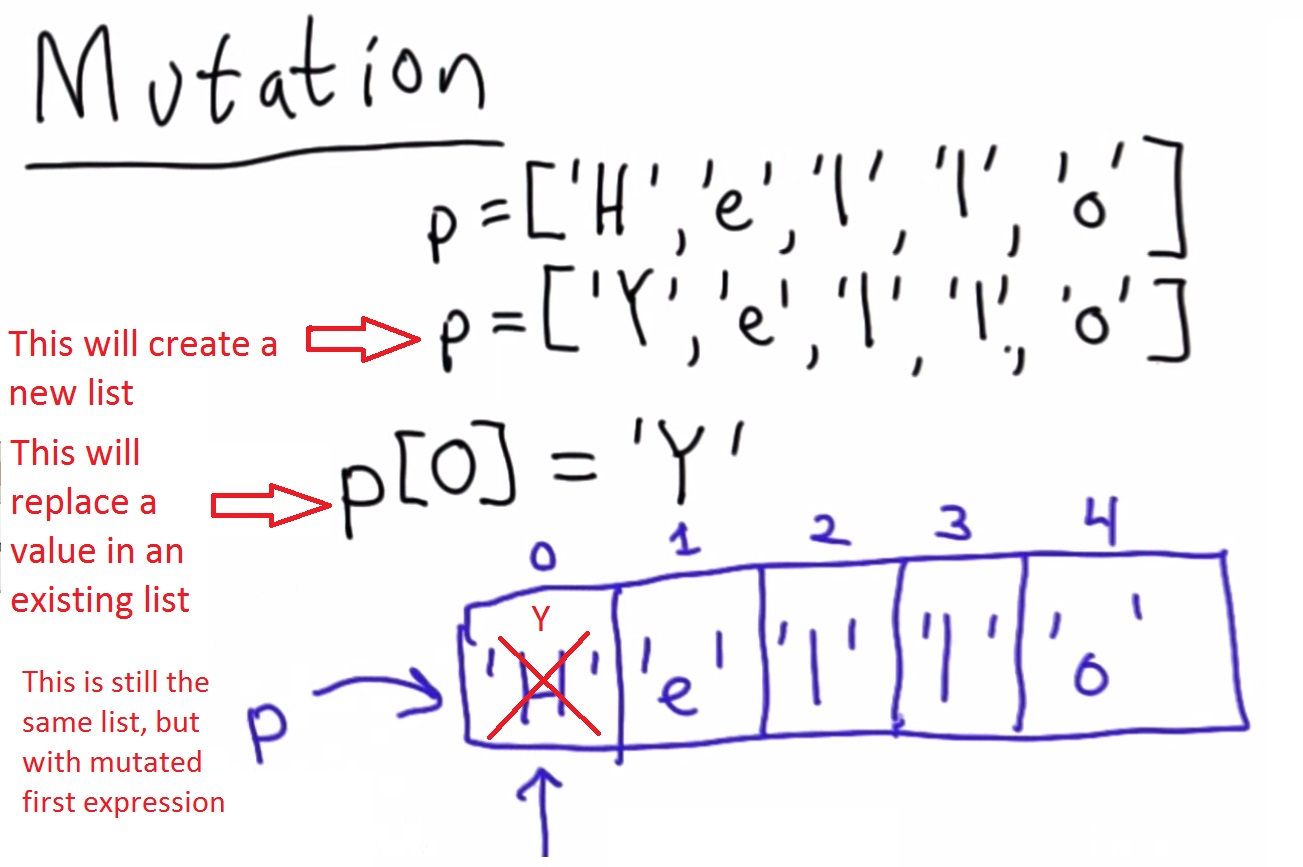 Mutation
p = ['H', 'e', 'l', 'l', 'o']
p = ['Y', 'e', 'l', 'l', 'o']
This will create a
new list
p[0] = 'Y'
This will
replace a
value in an
existing list
0 1 2 3 4
Y
'H' 'e' 'l' 'l' 'o'
p
This is still the
same list, but
with mutated
first expression